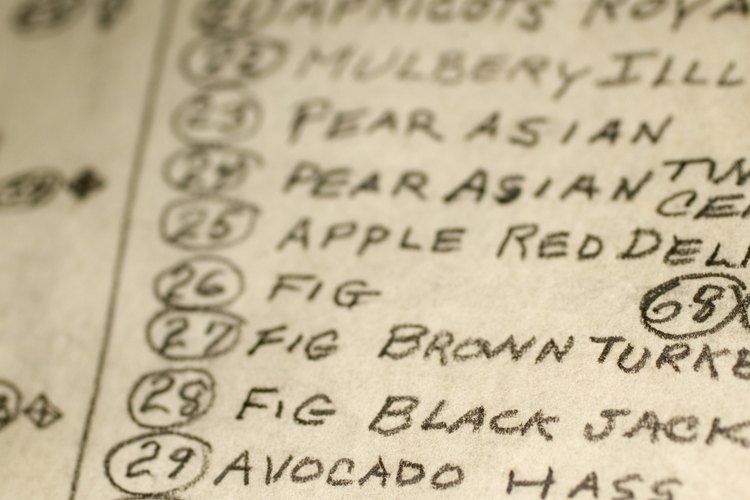 21 APRICOTS ROYA
22 MULBERY ILLL
23 PEAR ASIAN
24 PEAR ASIAN TW
CE
25 APPLE RED DEL
26 FIG 68
27 FIG BROWN TURKE
28 FIG BLACK JACK
29 AVOCADO HASS